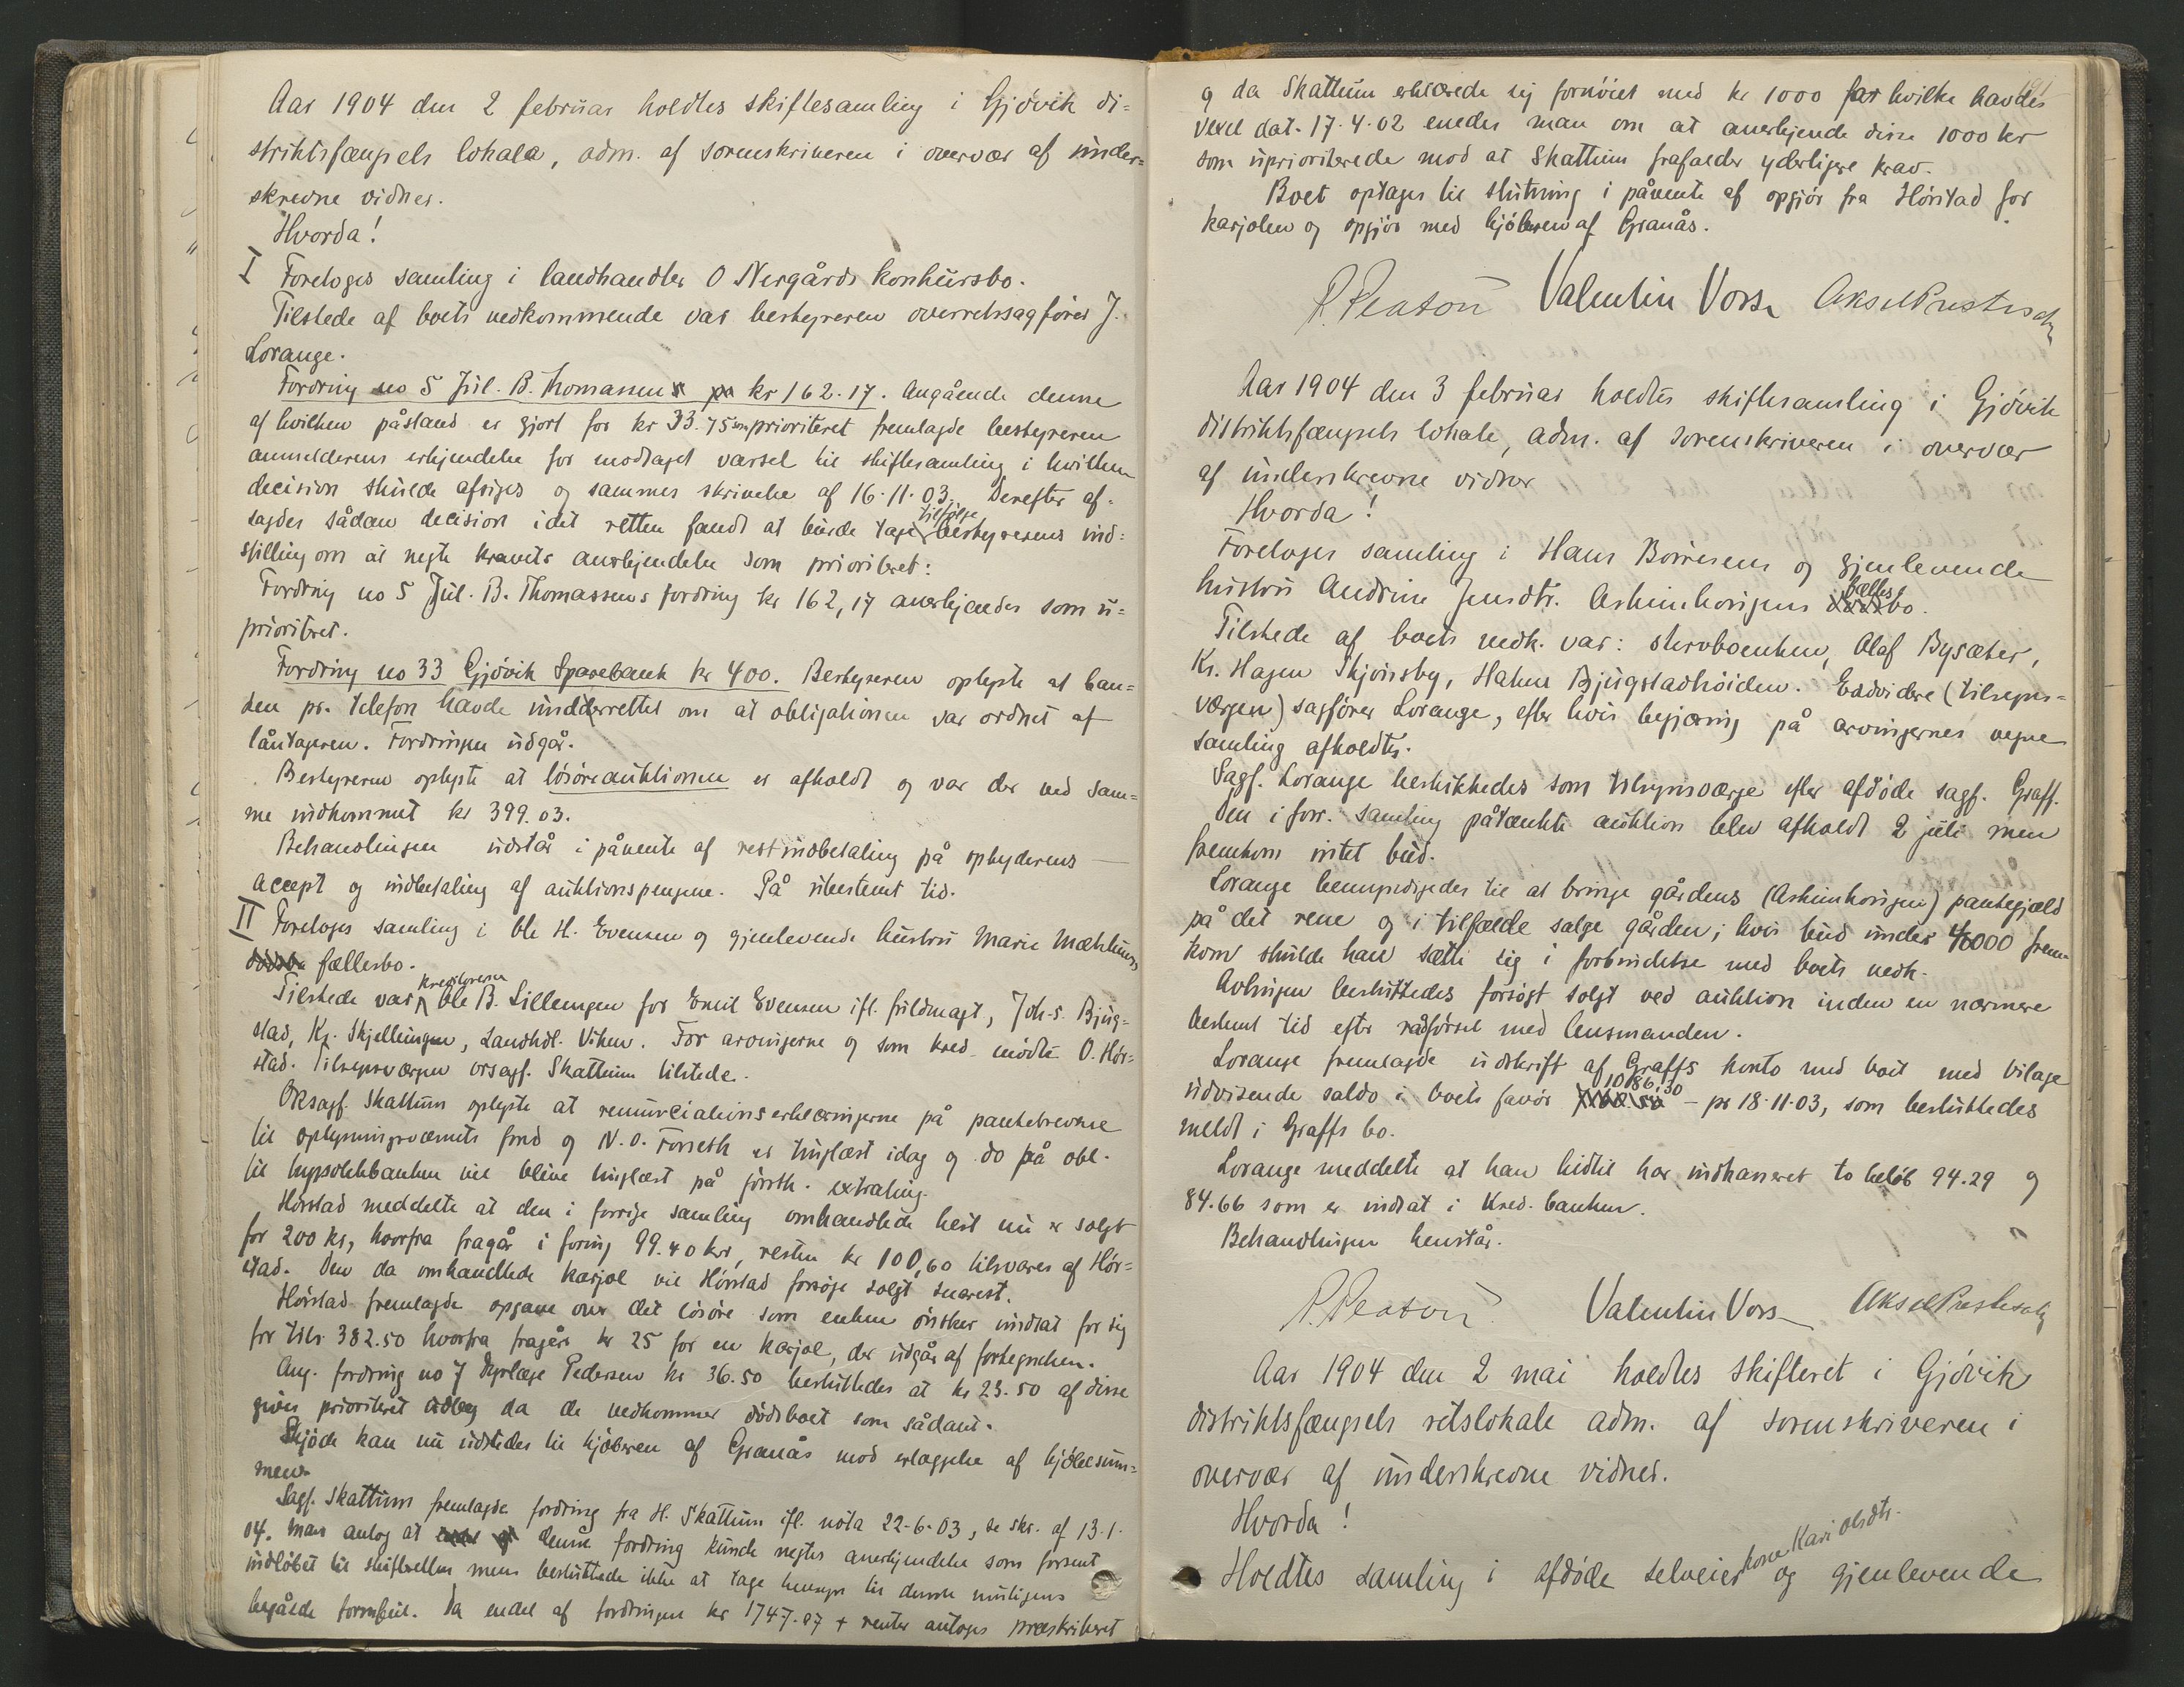 Aar 1904 den 2 februar holdtes skiftesamling i Gjøvik di=
striktsfængsels lokale, adm. af sorenskriveren i overvær af under=
skrevne vidner.
Hvorda!
I Foretoges samling i landhandler O Nergårds konkursbo.
Tilstede af boets vedkommende var bestyreren overretssagfører J.
Lorange.
Fordring no 5 Jul. B. Thomassens kr 162.17. Angående denne
af hvilken påstand er gjort for kr 33.75 som prioriteret fremlagde bestyreren
anmelderens erkjendelse for modtaget varsel til skiftesamling i hvilken
decision skulde afsiges og sammes skrivelse af 16.11.03. Derefter af=
sagdes sådan decision idet retten fandt at burde tage tilfølge bestyrerens ind=
stilling om at negte kravets anerkjendelse som prioriteret:
Fordring no 5 Jul. B. Thomassens fordring kr 162,17 anerkjendes som u=
prioriteret.
Fordring no 33 Gjøvik Sparebank kr 400. Bestyreren oplyste at ban=
ken pr. telefon havde underrettet om at obligationen var ordnet af
låntageren. Fordringen udgår.
Bestyreren oplyste at løsøreauktionen er afholdt og var der ved sam=
me indkommet kr 399.03.
Behandlingen udstår i påvente af restindbetaling på opbyderens
accept og indbetaling af auktionspengene. På ubestemt tid.
II Foretoges samling i Ole H. Evensen og gjenlevende hustru Marie Mæhlums
dødsbo fællesbo.
Tilstede var kreditorerne Ole B. Lilleengen for Emil Evensen ifl. fuldmagt, Joh. S. Bjug=
stad, Kr. Skjellingen, Landhdl. Viken. For arvingerne og som kred. mødte O. Hør=
stad. Tilsynsværgen orsagf. Skattum tilstede.
Orsagf. Skattum oplyste at renunciationserklæringerne på pantebrevene
til oplysningsvæsenets fond og N. O. Forseth er tinglæst idag og do på obl.
til hypothekbanken vil blive tinglæst på førstk. extrating.
Hørstad meddelte at den i forrige samling omhandlede hest nu er solgt
for 200 kr, hvorfra fragår i foring 99.40 kr, resten kr 100,60 tilsvares af Hør=
stad. Den da omhandlede karjol vil Hørstad forsøge solgt snarest.
Hørstad fremlagde opgave over det løsøre som enken ønsker undtat for sig
for tils. 382.50 hvorfra fragår kr 25 for en karjol, der udgår af fortegnelsen.
Ang. fordring no 7 Dyrlæge Pedersen kr 36.50 besluttedes at kr 23.50 af disse
gives prioritet udlæg da de vedkommer dødsboet som sådant.
Skjøde kan nu udstedes til kjøberen af Granås mod erlæggelse af kjøbesum=
men.
Sagf. Skattum fremlagde fordring fra H. Skattum ifl. nota 22-6-03, se skr. af 13.1.
04. Man antog at denne fordring kunde negtes anerkjendelse som forsent
indløbet til skifteretten men besluttede ikke at tage hensyn til denne muligens
begåede formfeil. Da endel af fordringen kr 1747.07 + renter antoges præskriberet
og da Skattum erklærede sig fornøiet med kr 1000 for hvilke havdes
vexel dat. 17.4.02 enedes man om at anerkjende disse 1000 kr
som uprioriterede mod at Skattum frafalder yderligere krav.
Boet optages til slutning i påvente af opgjør fra Hørstad for
karjolen og opgjør med kjøberen af Granås.
Valentin Vorse
Aar 1904 den 3 februar holdtes skiftesamling i Gjøvik
distriktsfængsels lokale, adm. af sorenskriveren i overvær
af underskrevne vidner
Hvorda!
Foretoges samling i Hans Børresens og gjenlevende
hustru Andrine Jensdtr. Askimhorigens fællesbo.
Tilstede af boets vedk. var: sterboenken, Olaf Bysæter,
Kr. Hagen Skjønsby, Haken Bjugstadhøiden. Endvidere (tilsyns=
værgen) sagfører Lorange, efter hvis begjæring på arvingernes vegne
samling afholdtes.
Sagf. Lorange beskikkedes som tilsynsværge efter afdøde sagf. Graff.
Den i forr. samling påtænkte auktion blev afholdt 2 juli men
fremkom intet bud.
Lorange bemyndigedes til at bringe gårdens (Askimhorigen) pantegjæld
på det rene og i tilfælde sælge gården; hvis bud under 4000 frem=
kom skulde han sætte sig i forbindelse med boets vedk.
Avlingen besluttedes forsøgt solgt ved auktion inden en nærmere
bestemt tid efter rådførsel med lensmanden.
Lorange fremlagde udskrift af Graffs konto med boet med bilage
udvisende saldo i boets favør 1086.30 - pr 18.11.03, som besluttedes
meldt i Graffs bo.
Lorange meddelte at han hidtil har indkasseret to beløb 94.29 og
84.66 som er indsat i Kred. banken.
Behandlingen henstår.
Valentin Vorse
Aar 1904 den 2 mai holdtes skifteret i Gjøvik
distriktsfængsels retslokale adm. af sorenskriveren i
overvær af underskrevne vidner.
Hvorda!
Holdtes samling i afdøde selveier kone Kari Olsdtr. og gjenlevende